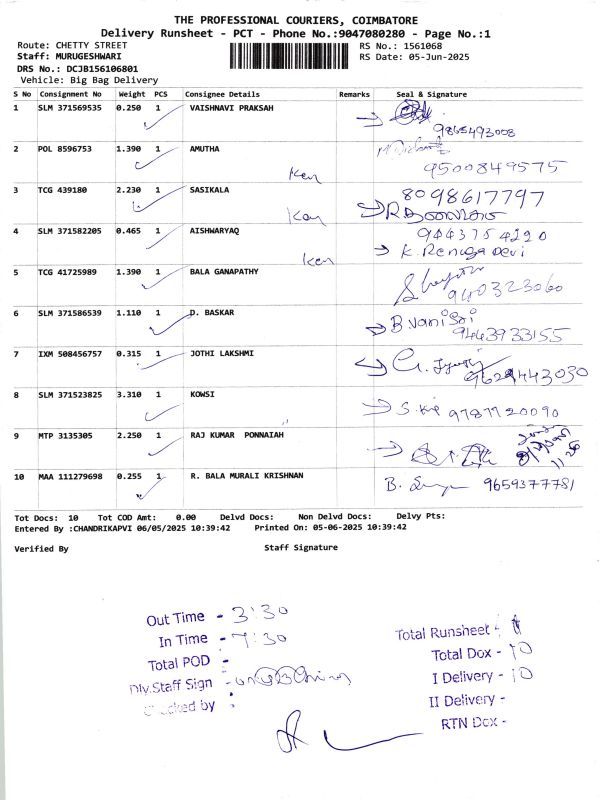 THE PROFESSIONAL COURIERS, COIMBATORE
Delivery Runsheet - PCT - Phone No.:9047080280 - Page No.:1
Route: CHETTY STREET
Staff: MURUGESHWARI
DRS No.: DCJB156106801
Vehicle: Big Bag Delivery
RS No.: 1561068
RS Date: 05-Jun-2025
S No Consignment No Weight PCS Consignee Details Remarks Seal & Signature
1 SLM 371569535 0.250 1 VAISHNAVI PRAKSAH
9865493008
2 POL 8596753 1.390 1 AMUTHA
9500849575
3 TCG 439180 2.230 1 SASIKALA
8098617797
4 SLM 371582205 0.465 1 AISHWARYAQ
9443754220
K. Renuga Devi
5 TCG 41725989 1.390 1 BALA GANAPATHY
940323060
6 SLM 371586539 1.110 1 D. BASKAR
B. Vani Sri
9443933155
7 IXM 508456757 0.315 1 JOTHI LAKSHMI
8 SLM 371523825 3.310 1 KOWSI
9787720090
9 MTP 3135305 2.250 1 RAJ KUMAR PONNAIAH
10 MAA 111279698 0.255 1 R. BALA MURALI KRISHNAN
9659377781
Tot Docs: 10 Tot COD Amt: 0.00 Delvd Docs: Non Delvd Docs: Delvy Pts:
Entered By :CHANDRIKAPVI 06/05/2025 10:39:42 Printed On: 05-06-2025 10:39:42
Verified By Staff Signature
Out Time - 3:30
In Time - 7:30
Total POD -
Dlv.Staff Sign -
Checked by :
Total Runsheet -
Total Dox - 10
I Delivery - 10
II Delivery -
RTN Dox -